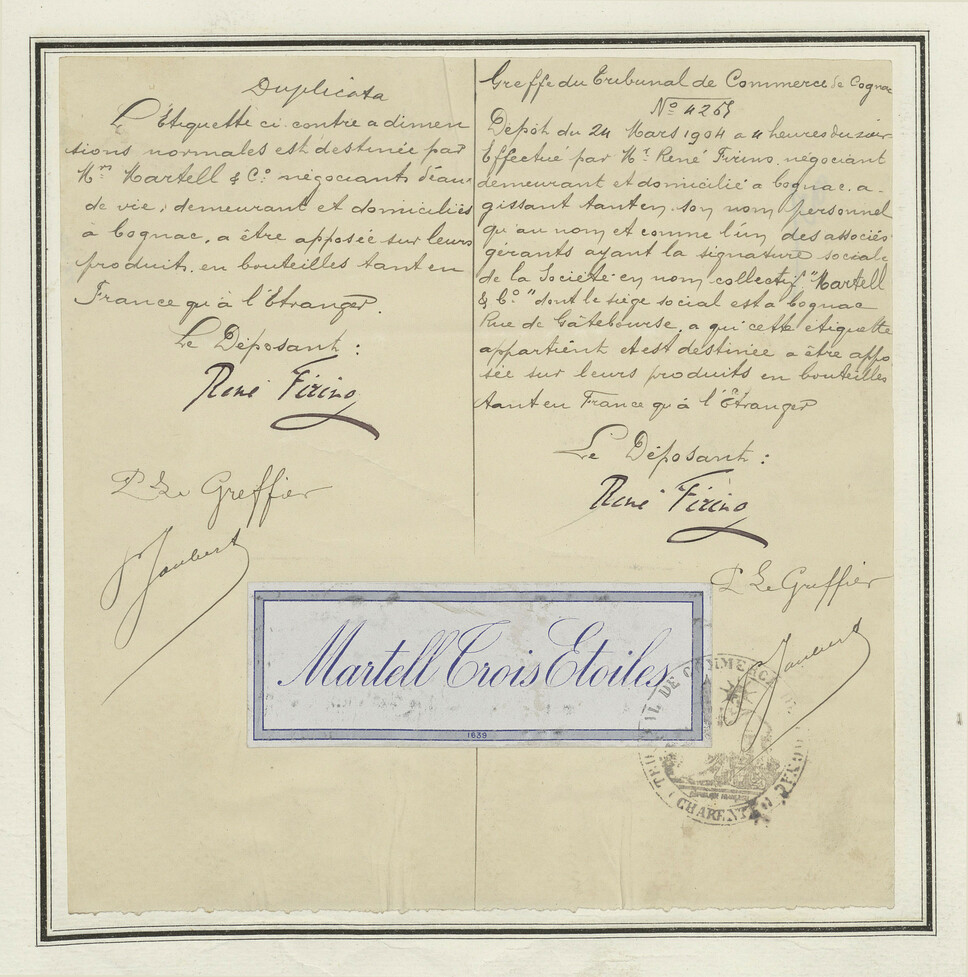 Duplicata
L'Étiquette ci-contre a dimen
sions normales est destinée par
Mrs Martell & Co négociants d'eau-
de vie, demeurant et domiciliés
a Cognac, a être apposée sur leurs
produits en bouteilles tant en
France qu'à l'Etranger.
Le Déposant :
René Firino
P. Le Greffier
Joubert
Greffe du Tribunal de Commerce de Cognac
No
Dépôt du 24 Mars 1904 a 4 heures du soir
Effectué par Mr. René Firino, négociant
demeurant et domicilié a Cognac, a-
gissant tant en son nom personnel
qu'au nom et comme l'un des associés
gérants ayant la signature sociale
de la Société en nom collectif "Martell
& Co" dont le siège social est a Cognac
Rue de Gâtebourse, a qui cette étiquette
appartient et est destinée a être appo
sée sur leurs produits en bouteilles
tant en France qu'à l'Étranger
Le Déposant :
René Firino
P. Le Greffier
Joubert
Martell Trois Etoiles
1639
TRIBUNAL DE COMMERCE DE COGNAC
CHARENTE